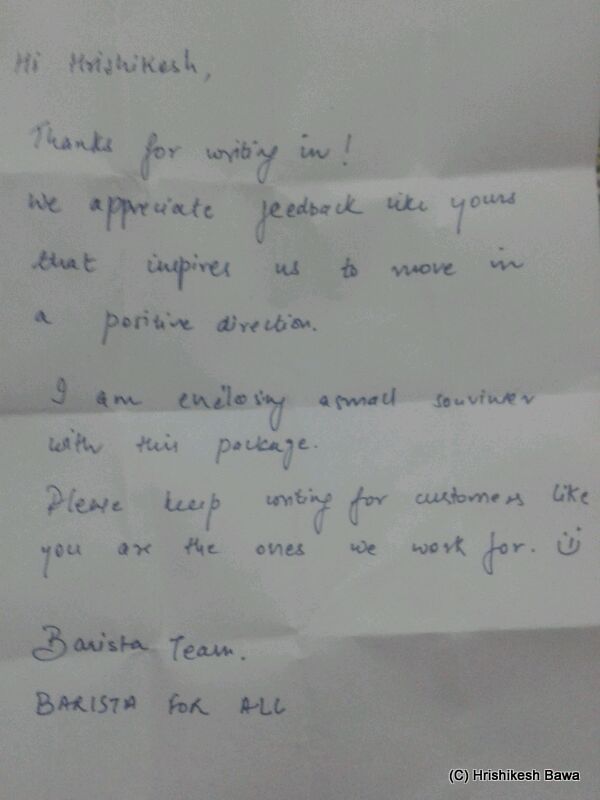 Hi Hrishikesh,
Thanks for writing in!
We appreciate feedback like yours
that inspires us to move in
a positive direction.
I am enclosing a small souviner
with this package.
Please keep writing for customers like
you are the ones we work for. ☺
Barista Team.
BARISTA FOR ALL
(C) Hrishikesh Bawa